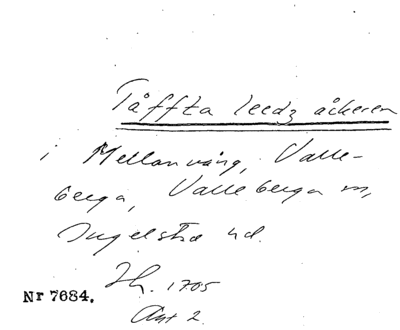 Tåffta leedz åckeren
i Mellanvång, Valle-
berga, Valleberga sn,
Ingelstad hd.
Jh. 1705
Nr 7684.
Akt 2